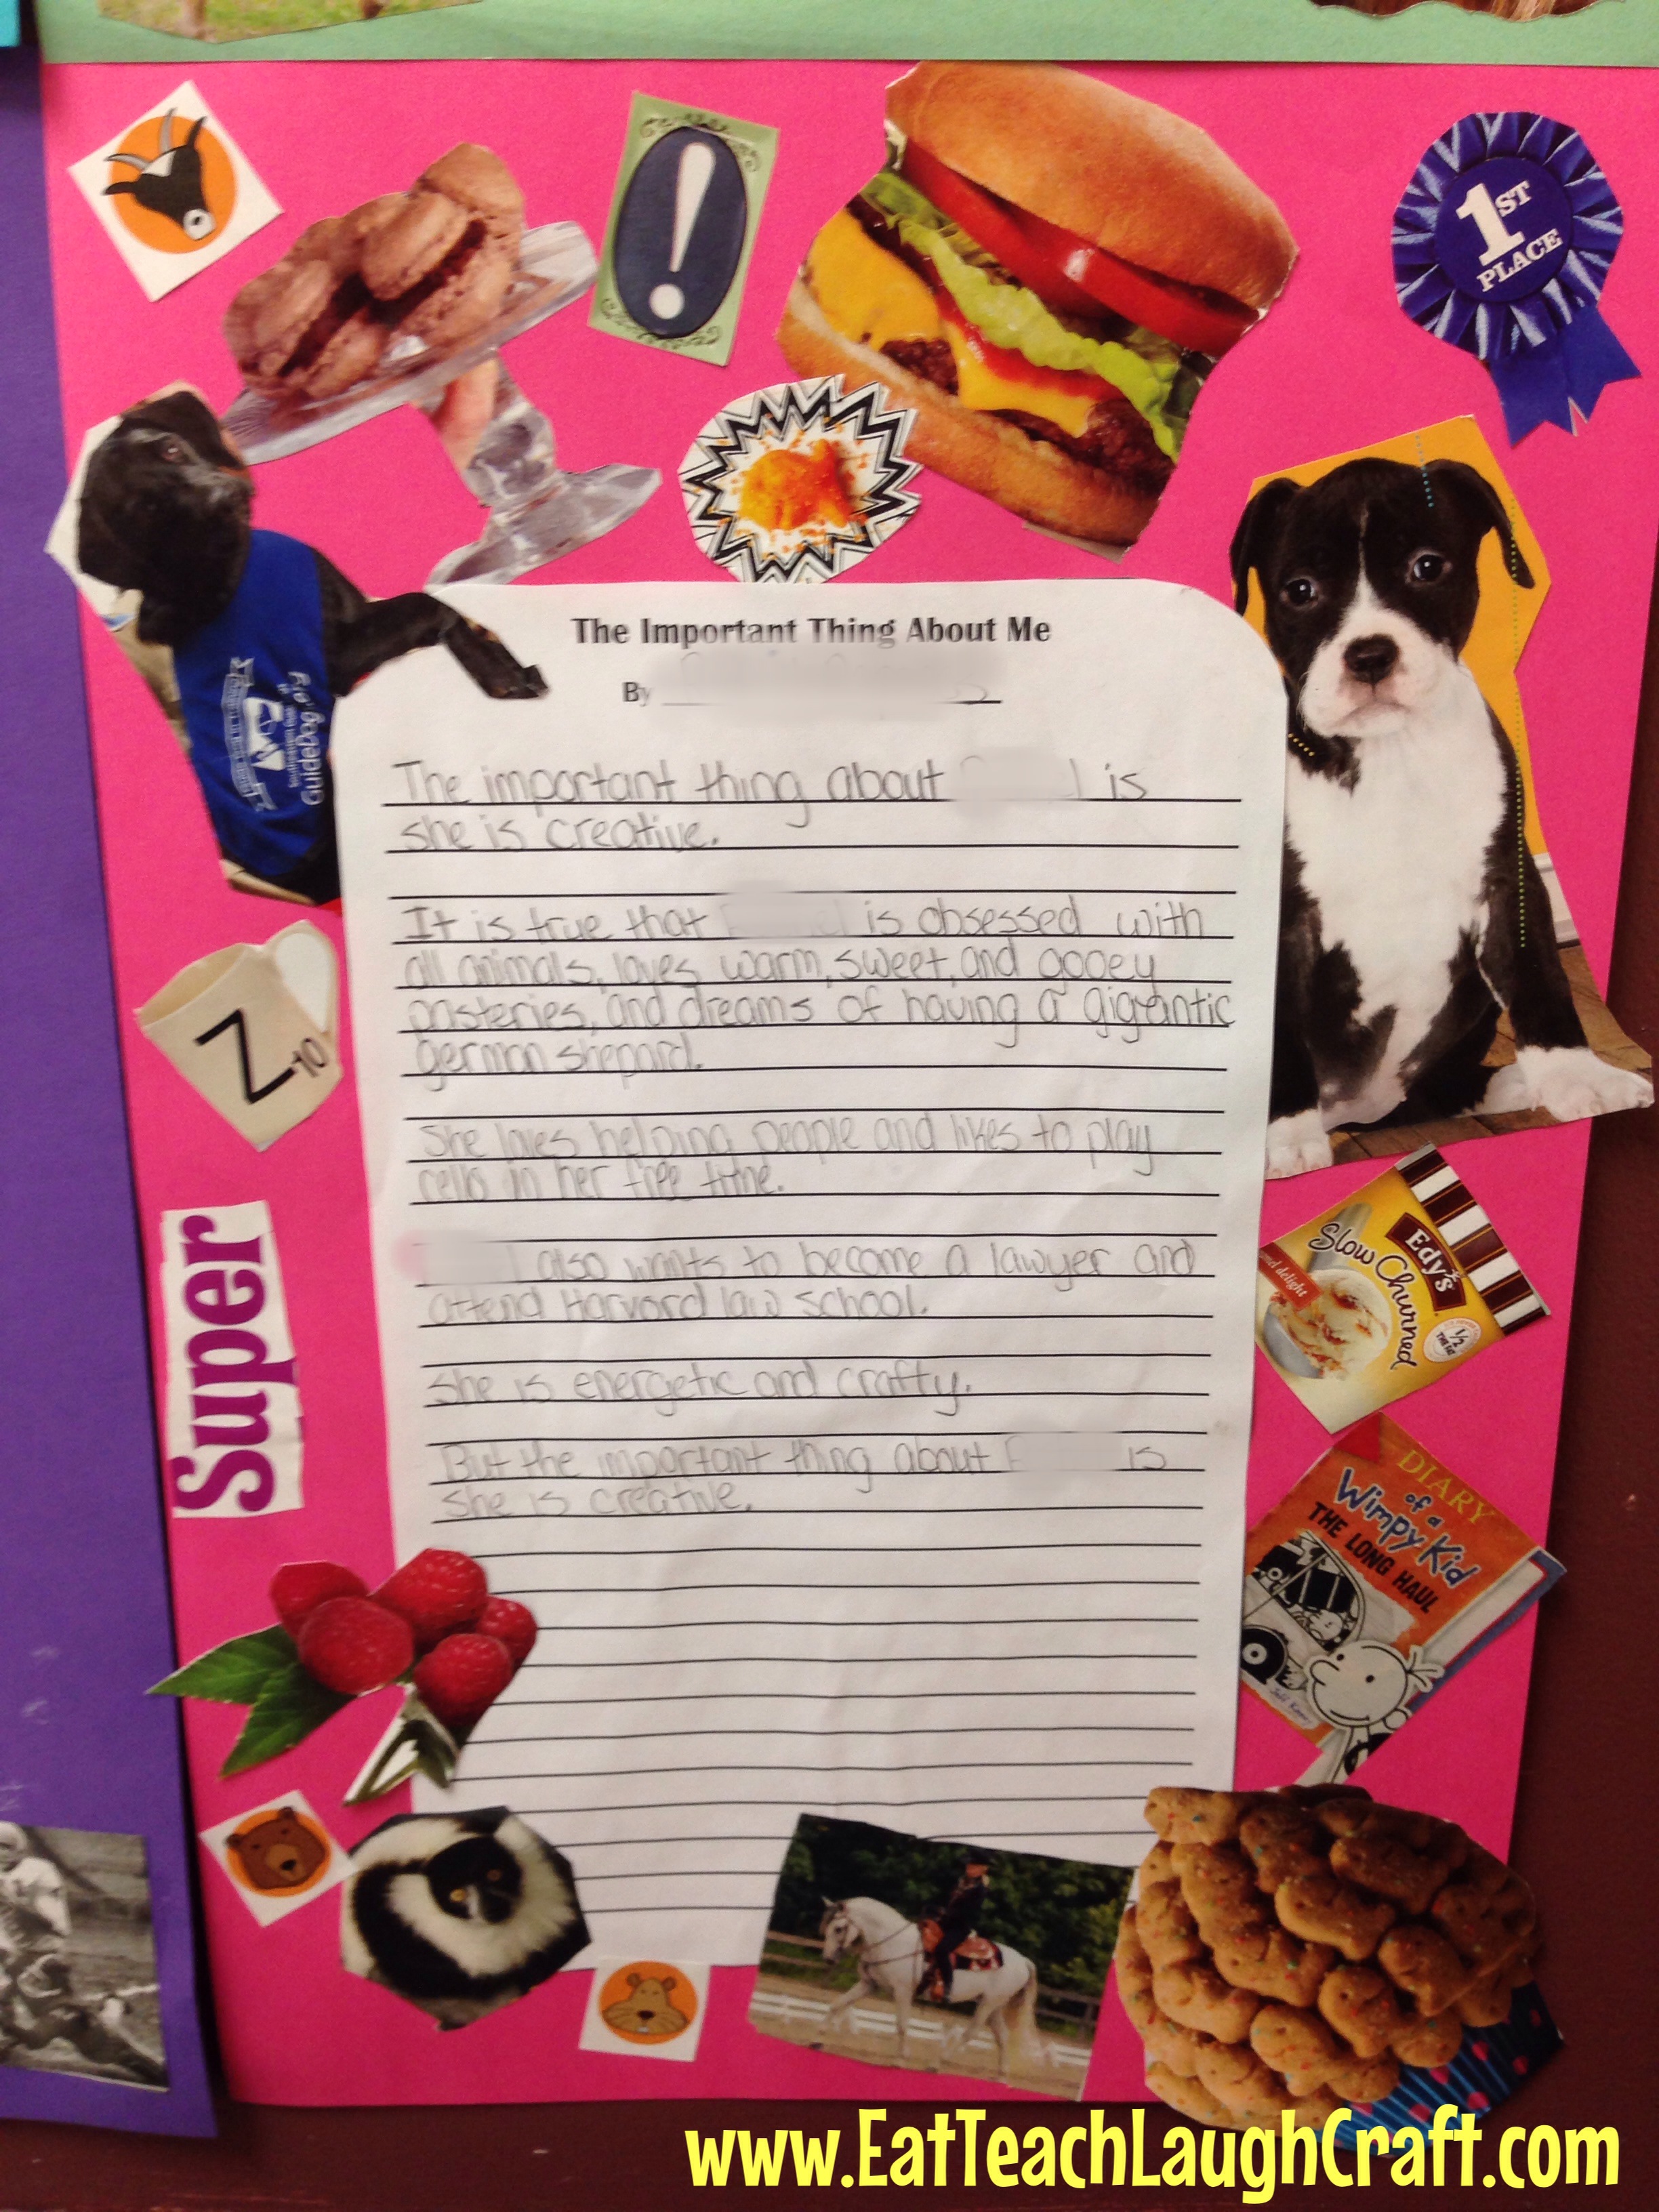 1ST
PLACE
!
GuideDog.org
The Important Thing About Me
By
The important thing about is
she is creative.
It is true that is obsessed with
all animals, loves warm, sweet, and gooey
pasteries, and dreams of having a gigantic
german shepard.
She loves helping people and likes to play
cello in her free time.
also wants to become a lawyer and
attend Harvord law school.
She is energetic and crafty.
But the important thing about is
she is creative.
Z10
Super
Edy's
Slow Churned
delight
1/2
THE FAT
DIARY
of a
Wimpy Kid
THE LONG HAUL
Jeff Kinney
www.EatTeachLaughCraft.com